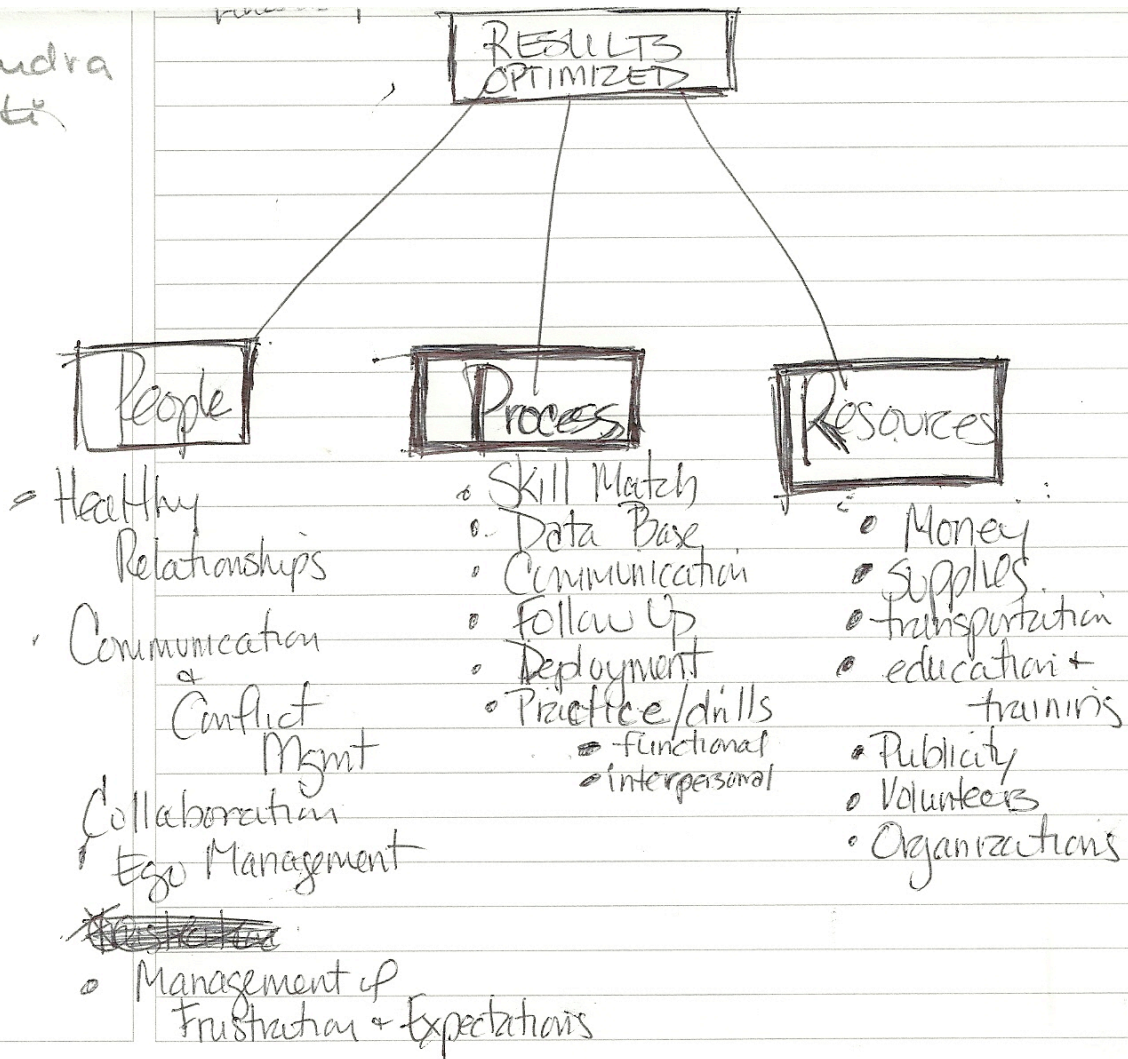 RESULTS
OPTIMIZED
People
• Healthy
Relationships
• Communication
&
Conflict
Mgmt
Collaboration
Ego Management
• Management of
Frustration + Expectations
Process
• Skill Match
• Data Base
• Communication
• Follow Up
• Deployment
• Practice/drills
• functional
• interpersonal
Resources
• Money
• supplies
• transportation
• education +
training
• Publicity
• Volunteers
• Organizations